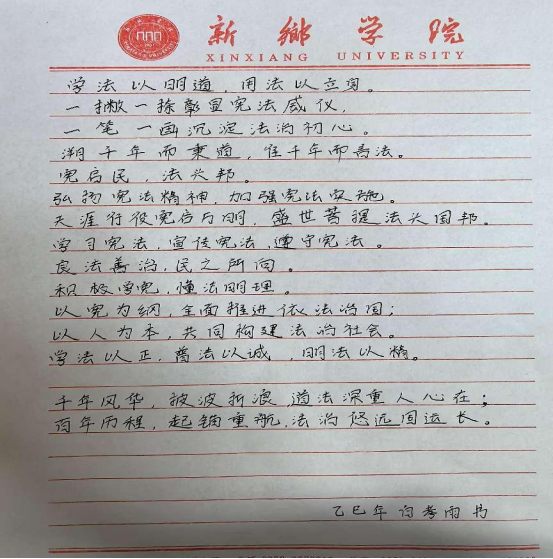 新鄉学院
XINXIANG UNIVERSITY
学法以明道，用法以立身。
一撇一捺彰显宪法威仪，
一笔一画沉淀法治初心。
溯千年而秉道，任千年而善法。
宪启民，法兴邦。
弘扬宪法精神，加强宪法实施。
天涯行役宪启后明，盛世营理法兴国邦。
学习宪法，宣传宪法，遵守宪法。
良法善治，民之所向。
积极学宪，懂法明理。
以宪为纲，全面推进依法治国；
以人为本，共同构建法治社会。
学法以正，普法以诚，明法以精。
千年风华，披波折浪，道法深重人心在；
百年历程，起锚重航，法治悠远国运长。
乙巳年 雨书